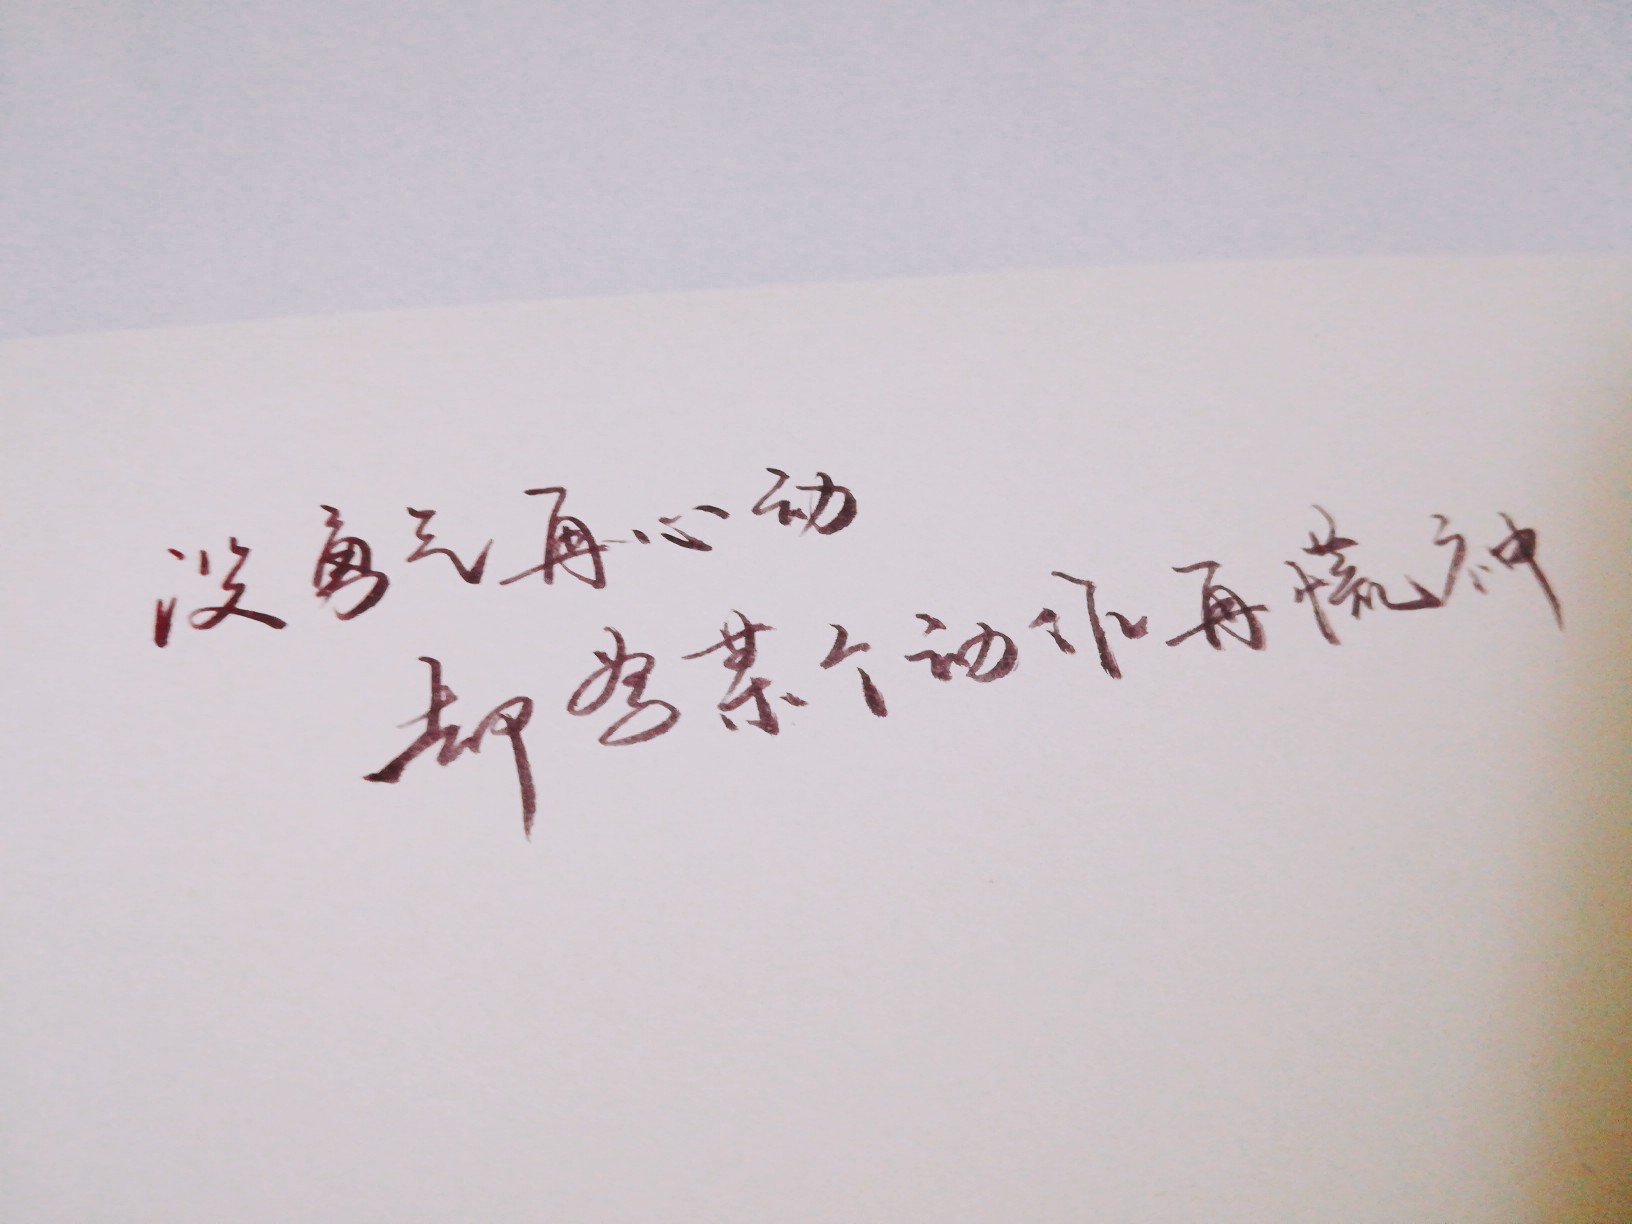 没勇气再心动
却为某个动作再慌神